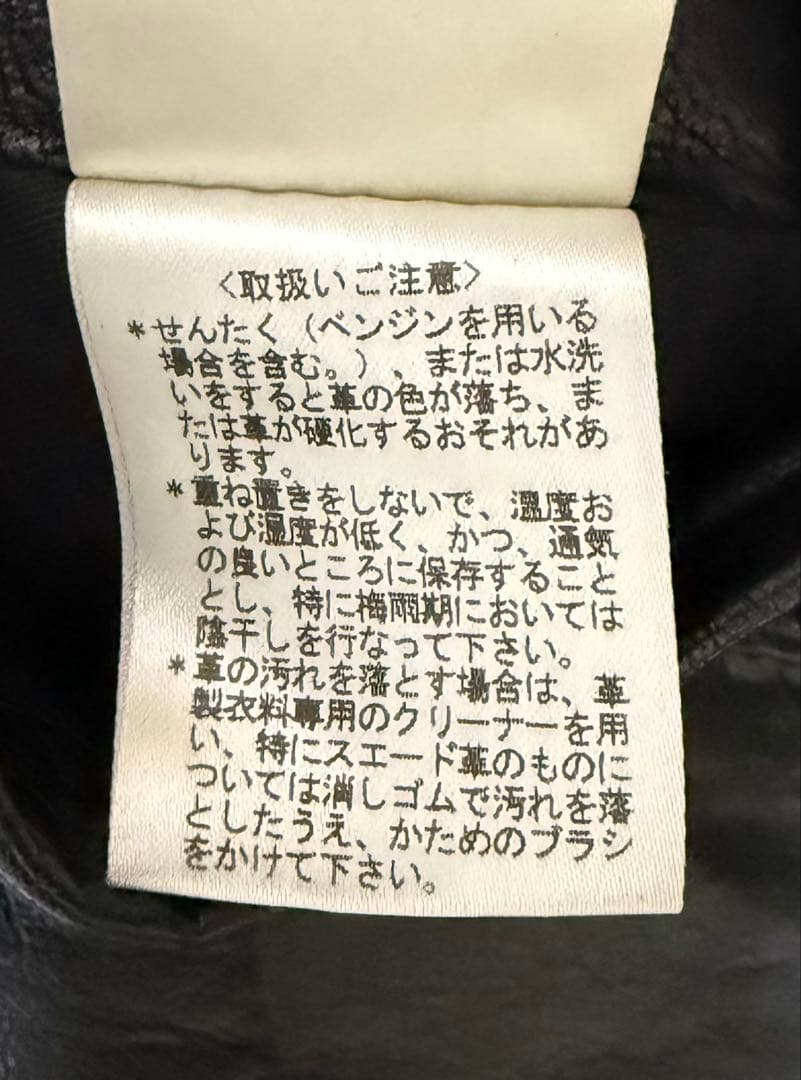 〈取扱いご注意〉
*せんたく（ベンジンを用いる
場合を含む。）、または水洗
いをすると革の色が落ち、ま
たは革が硬化するおそれがあ
ります。
*重ね置きをしないで、温度お
よび湿度が低く、かつ、通気
の良いところに保存すること
とし、特に梅雨期においては
陰干しを行なって下さい。
*革の汚れを落とす場合は、革
製衣料専用のクリーナーを用
い、特にスエード革のものに
ついては消しゴムで汚れを落
としたうえ、かためのブラシ
をかけて下さい。